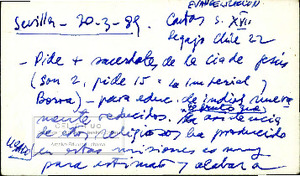 EVANGELIZACION
Sevilla - 20-3-89. Cartas s. XVII
Legajo Chile 22
- Pide + sacerdotes de la Cía de Jesús
(son 2, pide 15 = la Imperial y
Boroa) - para educ. de indios nueva
mente reducidos. la asistencia
de estos religiosos ha producido
en otras misiones es muy
para estimar y alabar a